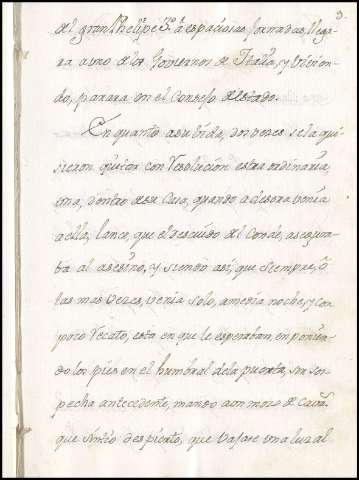 3.
del gran Phelipe 3.º á espaciosas Jornadas, llega-
ra a uno de los Goviernos de Italia, y vinien-
do, parara en el Consejo de Estado.
En quanto a su vida, dos veces se la qui-
sieron quitar con resolucion estra ordinaria,
una, dentro de su Casa, quando a desora venia
a ella, lance, que el descuido del Conde, asegura-
ba al asesino, y siendo asi, que siempre, ó
las mas veces, venia solo, a media noche, y con
poco recato, esta en que le esperaban, en ponien-
do los pies en el humbral de la puerta, sin sos-
pecha antecedente, mando a un mozo de Cava.
que sintió despierto, que vajase una luz al